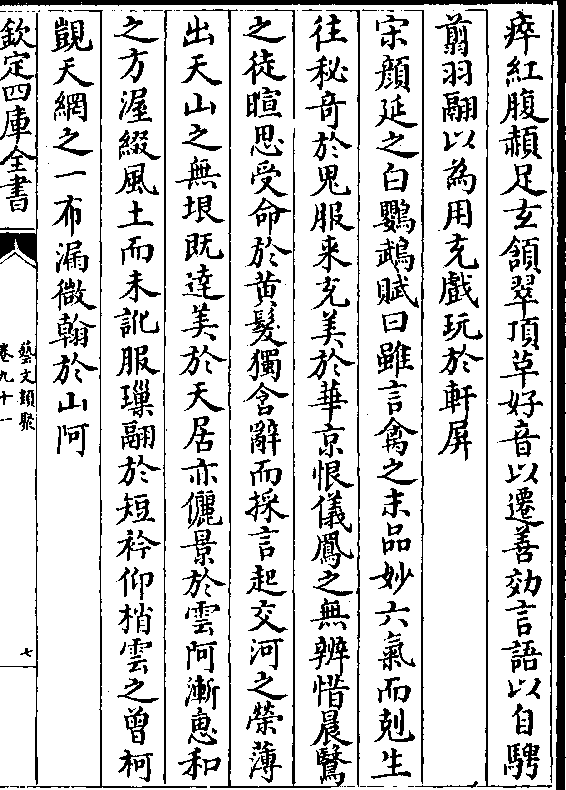 瘁紅腹赬足玄頷翠頂革好音以遷善効言語以自騁
翦羽翮以為用充戲玩於軒屏
宋顔延之白鸚鵡賦曰雖言禽之末品妙六氣而剋生
往秘奇於鬼服来充美於華京恨儀鳳之無辨惜晨鷖
之徒暄思受命於黄髮獨含辭而採言起交河之榮薄
出天山之無垠既達美於天居亦儷景於雲阿漸惠和
之方渥綴風土而未訛服璅翮於短衿仰梢雲之曾柯
覬天網之一布漏微翰於山阿
欽定四庫全書
藝文類聚
卷九十一
七